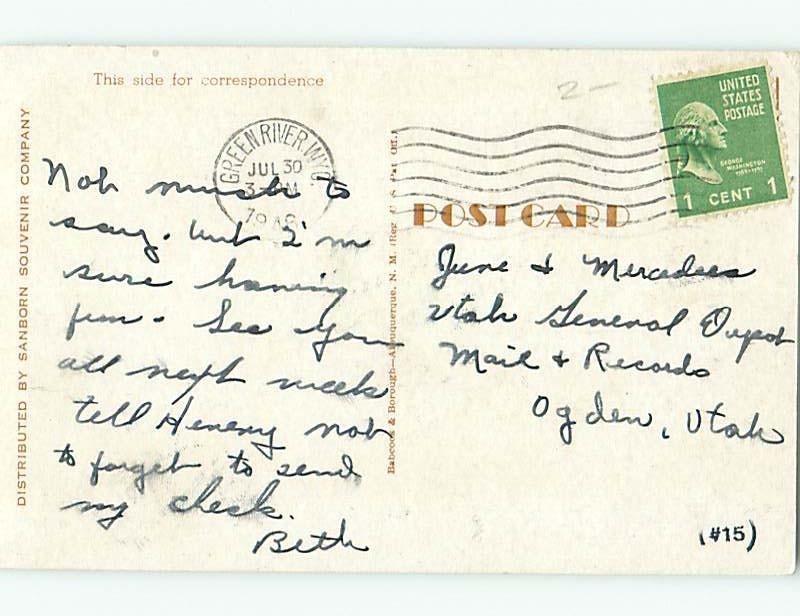 This side for correspondence
2-
UNITED
STATES
POSTAGE
GEORGE
WASHINGTON
1 CENT 1
GREEN RIVER, WYO.
JUL 30
PM
POST CARD
Not much to
say. but I'm
sure having
fun. See you
all next week
tell Henery not
to forget to send
my check.
Beth
June & Mercedees
Utah General Depot
Mail & Records
Ogden, Utah
DISTRIBUTED BY SANBORN SOUVENIR COMPANY
Babcock & Borough—Albuquerque, N. M. (Reg. U. S. Pat. Off.)
(#15)